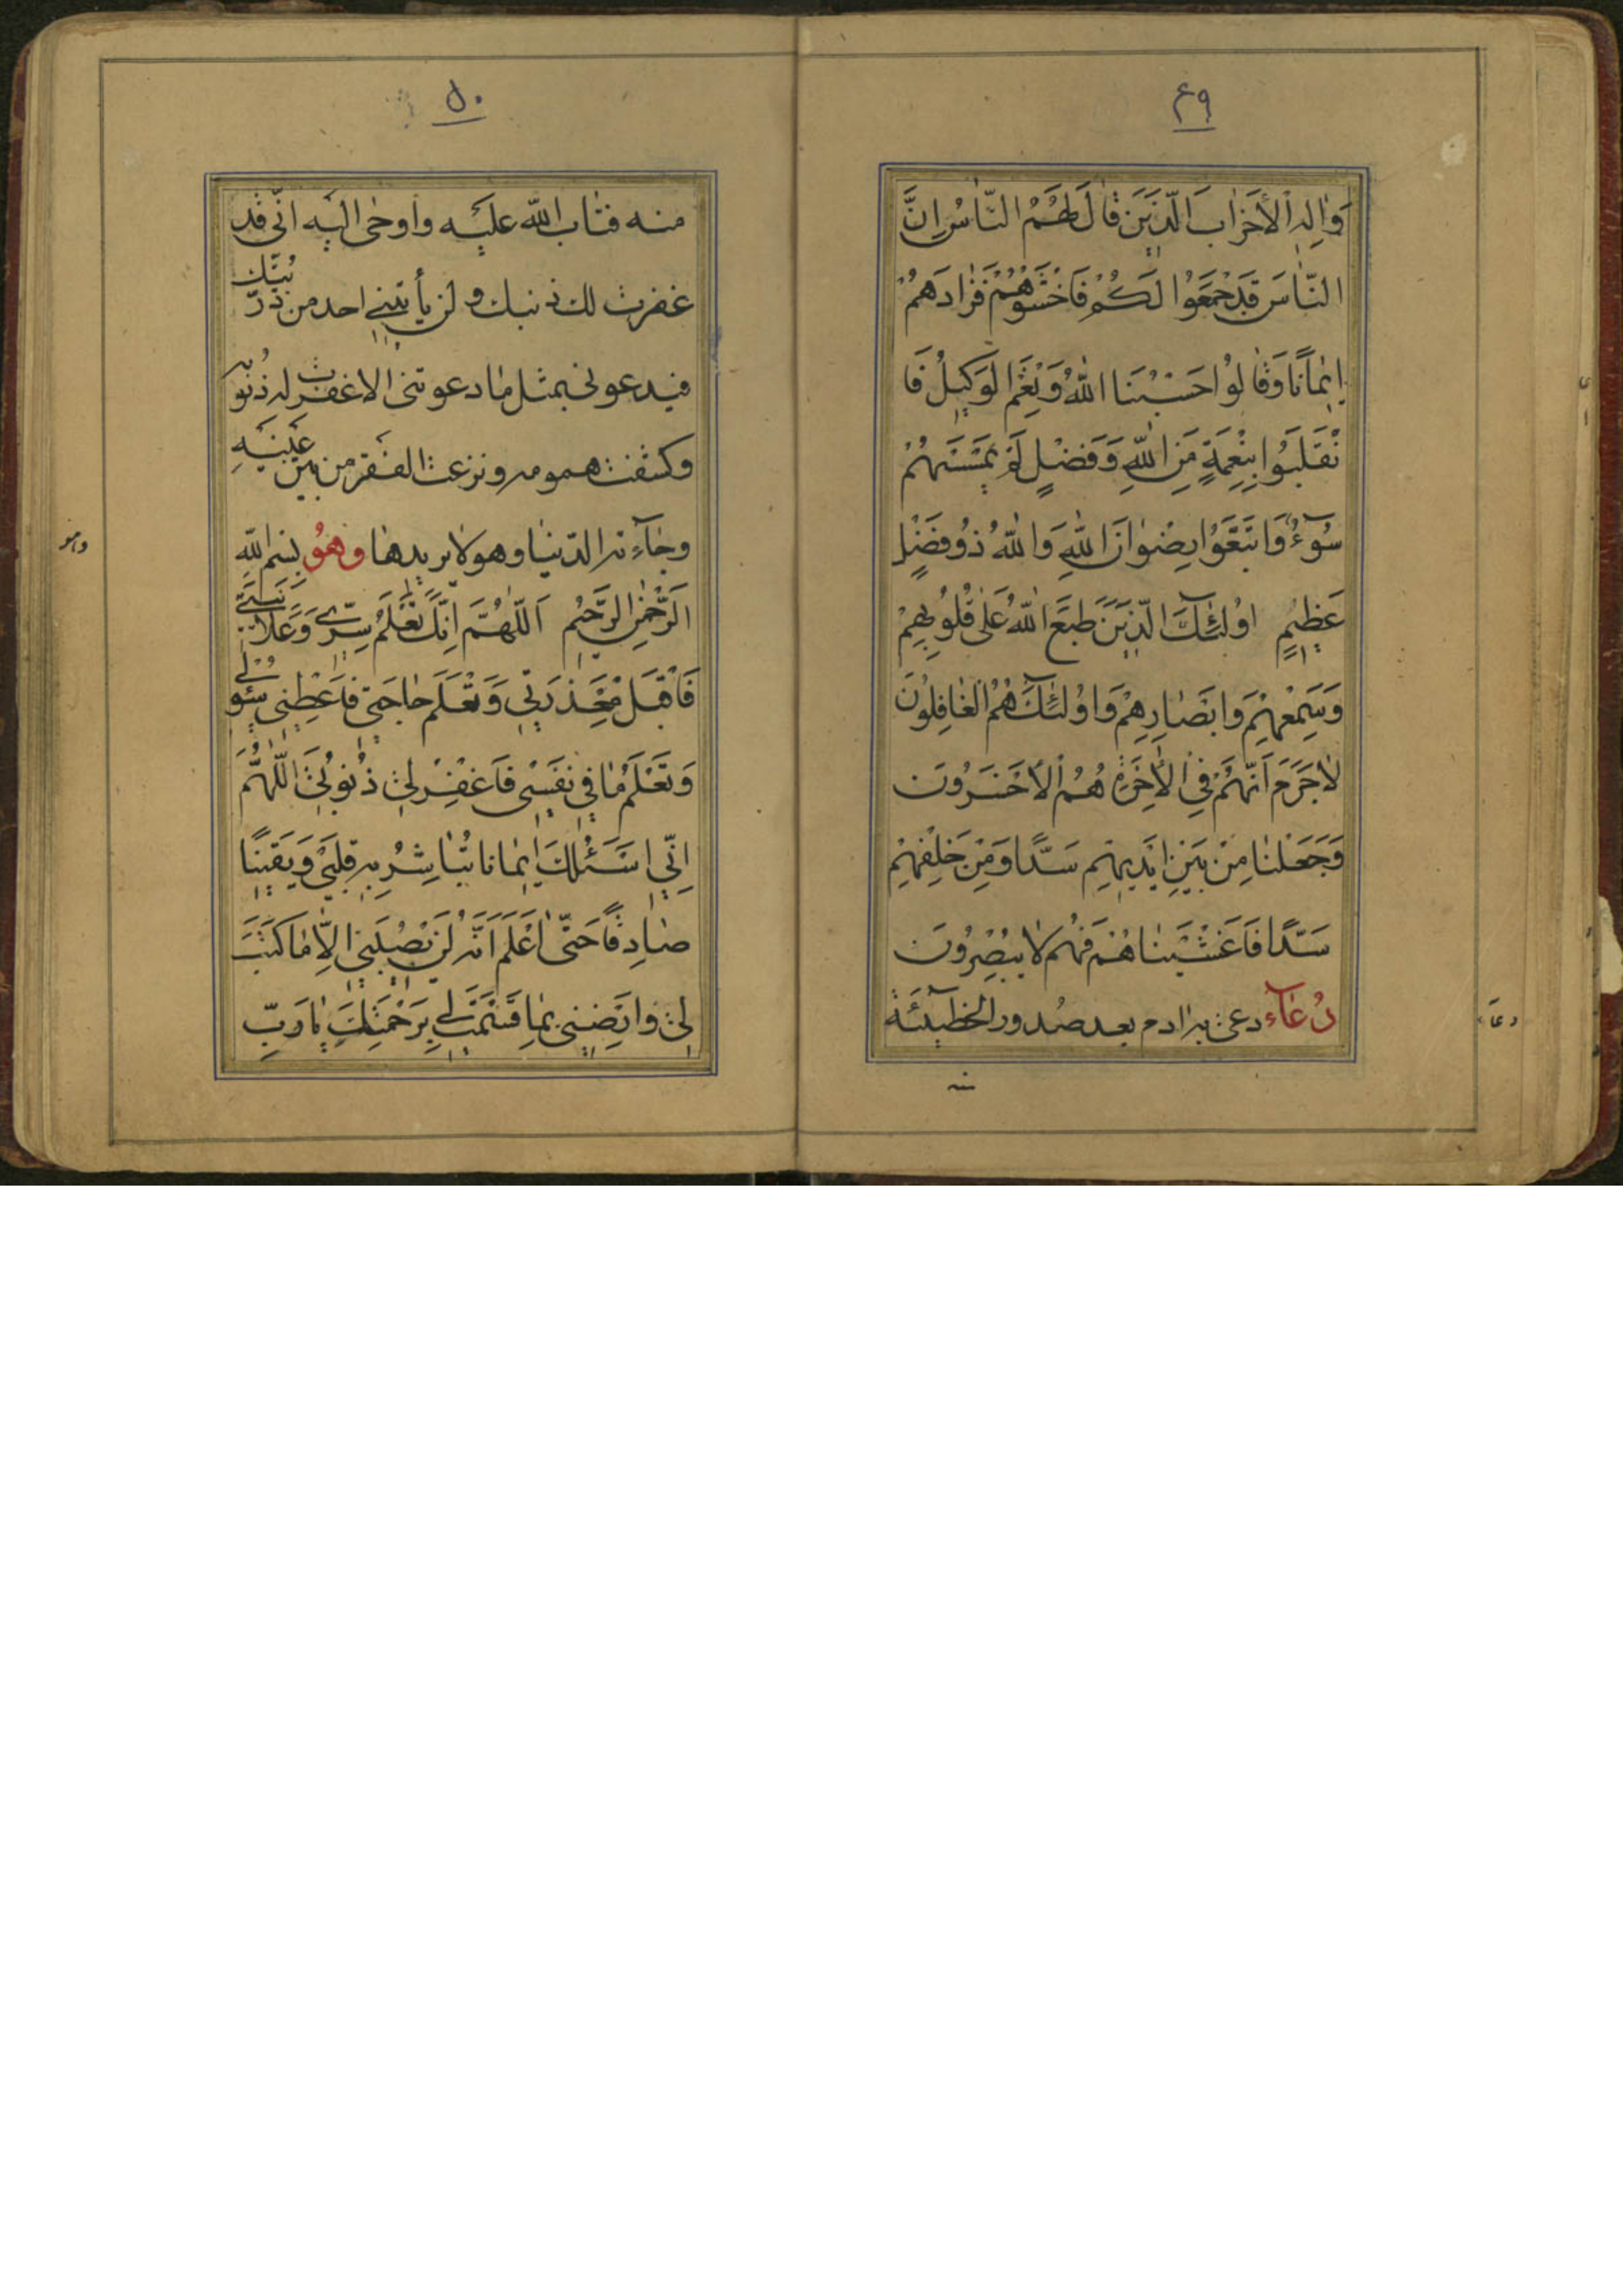 ٤٩
وَالِهِ الْأَحْزابَ الَّذينَ قالَ لَهُمُ النّاسُ اِنَّ
النّاسَ قَدْ جَمَعُوا لَكُمْ فَاخْشَوْهُمْ فَزادَهُمْ
اِيمٰانًا وَقٰالُوا حَسْبُنَا اللّٰهُ وَنِعْمَ الْوَكيلُ فَا
نْقَلَبُوا بِنِعْمَةٍ مِنَ اللّٰهِ وَفَضْلٍ لَمْ يَمْسَسْهُمْ
سُوۤءٌ وَاتَّبَعُوا رِضْوانَ اللّٰهِ وَاللّٰهُ ذُو فَضْلٍ
عَظيمٍ اُولٰئِكَ الَّذينَ طَبَعَ اللّٰهُ عَلٰى قُلُوبِهِمْ
وَسَمْعِهِمْ وَاَبْصٰارِهِمْ وَاُولٰئِكَ هُمُ الْغٰافِلُونَ
لاٰ جَرَمَ اَنَّهُمْ فِي الْاٰخِرَةِ هُمُ الْاَخْسَرُونَ
وَجَعَلْنٰا مِنْ بَيْنِ اَيْديهِمْ سَدًّا وَمِنْ خَلْفِهِمْ
سَدًّا فَاَغْشَيْنٰاهُمْ فَهُمْ لاٰ يُبْصِرُونَ
دُعٰاۤء دعى به ادم بعد صدور الخطيئة
منه
دعاء
٥٠
منه فتٰاب اللّٰه عليه واوحٰى اليه انّى قد
غفرت لك ذنبك ولن يأتينى احد من ذرّيتك
فيدعونى بمثل مٰا دعوتنى الا غفرت له ذنوبه
وكشفت همومه ونزعت الفقر من بين عينيه
وجٰاۤءته الدّنيٰا وهو لاٰ يريدهٰا وهُو بسم اللّٰه
الرَّحْمٰنِ الرَّحيمِ اَللّٰهُمَّ اِنَّكَ تَعْلَمُ سِرّي وَعَلاٰنِيَتي
فَاقْبَلْ مَعْذِرَتي وَتَعْلَمُ حٰاجَتي فَاَعْطِني سُؤْلي
وَتَعْلَمُ مٰا في نَفْسي فَاغْفِرْ لي ذُنُوبي اَللّٰهُمَّ
اِنّي اَسْئَلُكَ اِيمٰانًا تُبٰاشِرُ بِهِ قَلْبي وَيَقينًا
صٰادِقًا حَتّٰى اَعْلَمَ اَنَّهُ لَنْ يُصيبَني اِلاّٰ مٰا كَتَبْتَ
لي وَاَرْضِني بِمٰا قَسَمْتَ لي بِرَحْمَتِكَ يٰا رَبِّ
وهو